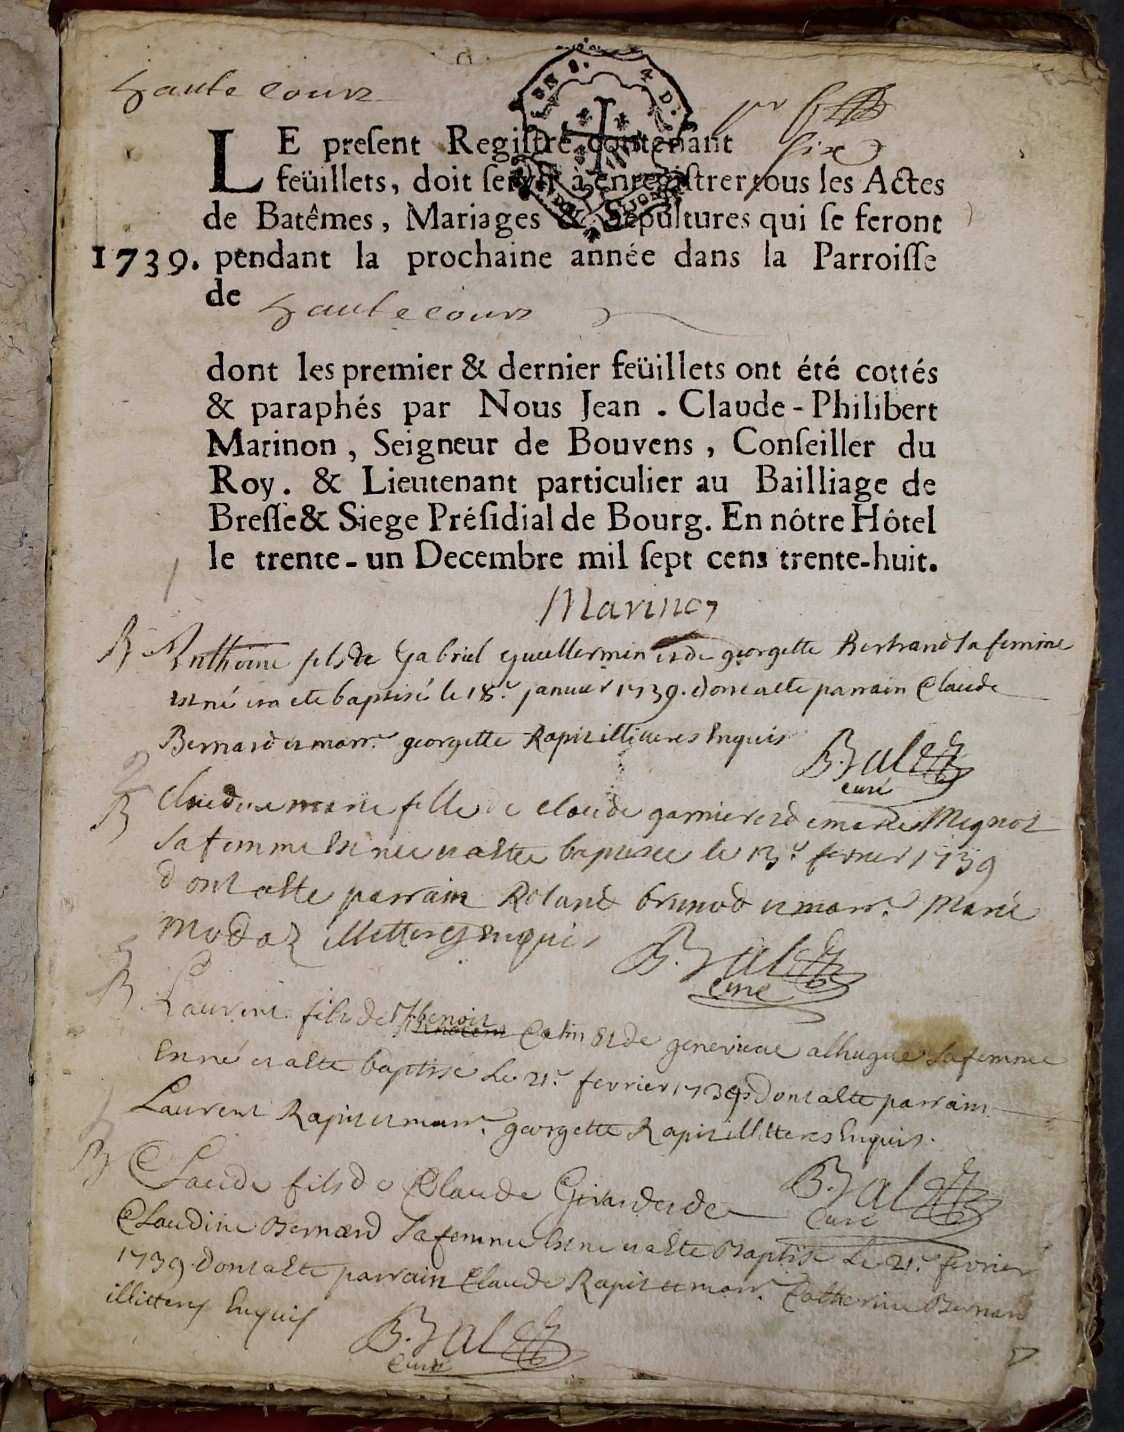 haute cour
pr
LE present Registre contenant six
feüillets, doit servir à enregistrer tous les Actes
de Batêmes, Mariages & Sepultures qui se feront
1739. pendant la prochaine année dans la Parroisse
de hautecour
dont les premier & dernier feüillets ont été cottés
& paraphés par Nous Jean . Claude - Philibert
Marinon , Seigneur de Bouvens , Conseiller du
Roy . & Lieutenant particulier au Bailliage de
Bresse & Siege Présidial de Bourg. En nôtre Hôtel
le trente - un Decembre mil sept cens trente-huit.
Marinon
B Anthoine fils de Gabriel guillermin et de georgette Bertrand sa femme
est né et a ete baptisé le 18.e janvier 1739. dont a ete parrain Claude
Bernard et marr.e georgette Rapit illitteres Enquis
B. Curé
B Claudine marie fille de claude garnier et de marie Mignot
sa femme Est née et a ete baptisée le 13.e fevrier 1739
dont a ete parrain Roland brunod et marr.e Marie
Modaz illitteres Enquis
B. Curé
B Laurent fils de benoit Catin Et de genevieve alhugue sa femme
Est né et a ete baptisé Le 21.e fevrier 1739 dont a ete parrain
Laurent Rapit et marr.e georgette Rapit illitteres Enquis.
B. Curé
B Claude fils de Claude Girard et de
Claudine Bernard sa femme Est né et a ete Baptisé Le 21.e fevrier
1739. dont a ete parrain Claude Rapit et marr.e Catherine Bernard
illitteres Enquis
B. Curé